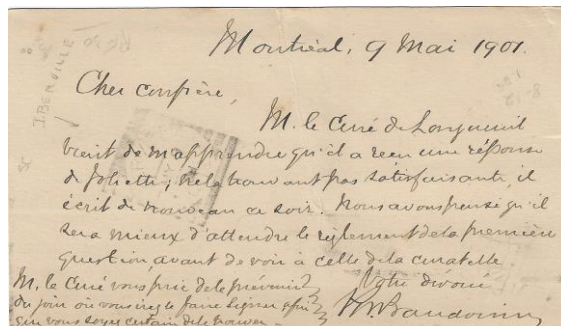 Montréal, 9 Mai 1901.
Cher confrère,
IBERVILLE
M. le Curé de Longueuil
vient de m'apprendre qu'il a reçu une réponse
de Joliette; ne la trouvant pas satisfaisante, il
écrit de nouveau ce soir. Nous avons pensé qu'il
sera mieux d'attendre le règlement de la première
question avant de voir à celle de la curatelle
Votre dévoué
M. le Curé vous prie de le prévenir
du jour où vous irez le faire signer afin
que vous soyez certain de le trouver.
Baudouin